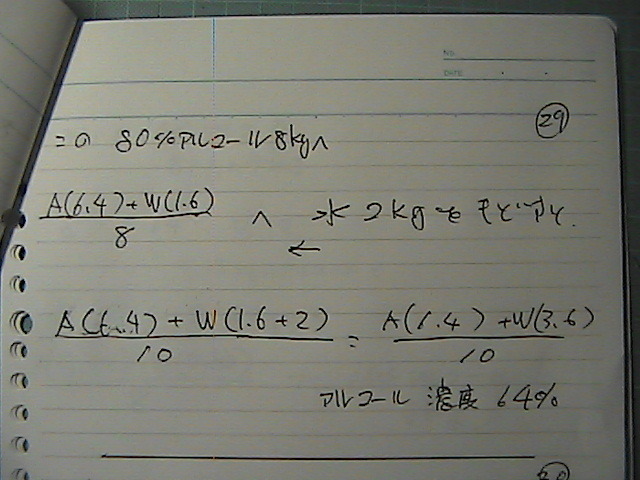 NO.
DATE
29
この 80%アルコール8kgへ
A(6.4)+W(1.6)
8
へ 水 2kgを
←
A(6.4)+W(1.6+2)
10
=
A(6.4)+W(3.6)
10
アルコール 濃度 64%
30